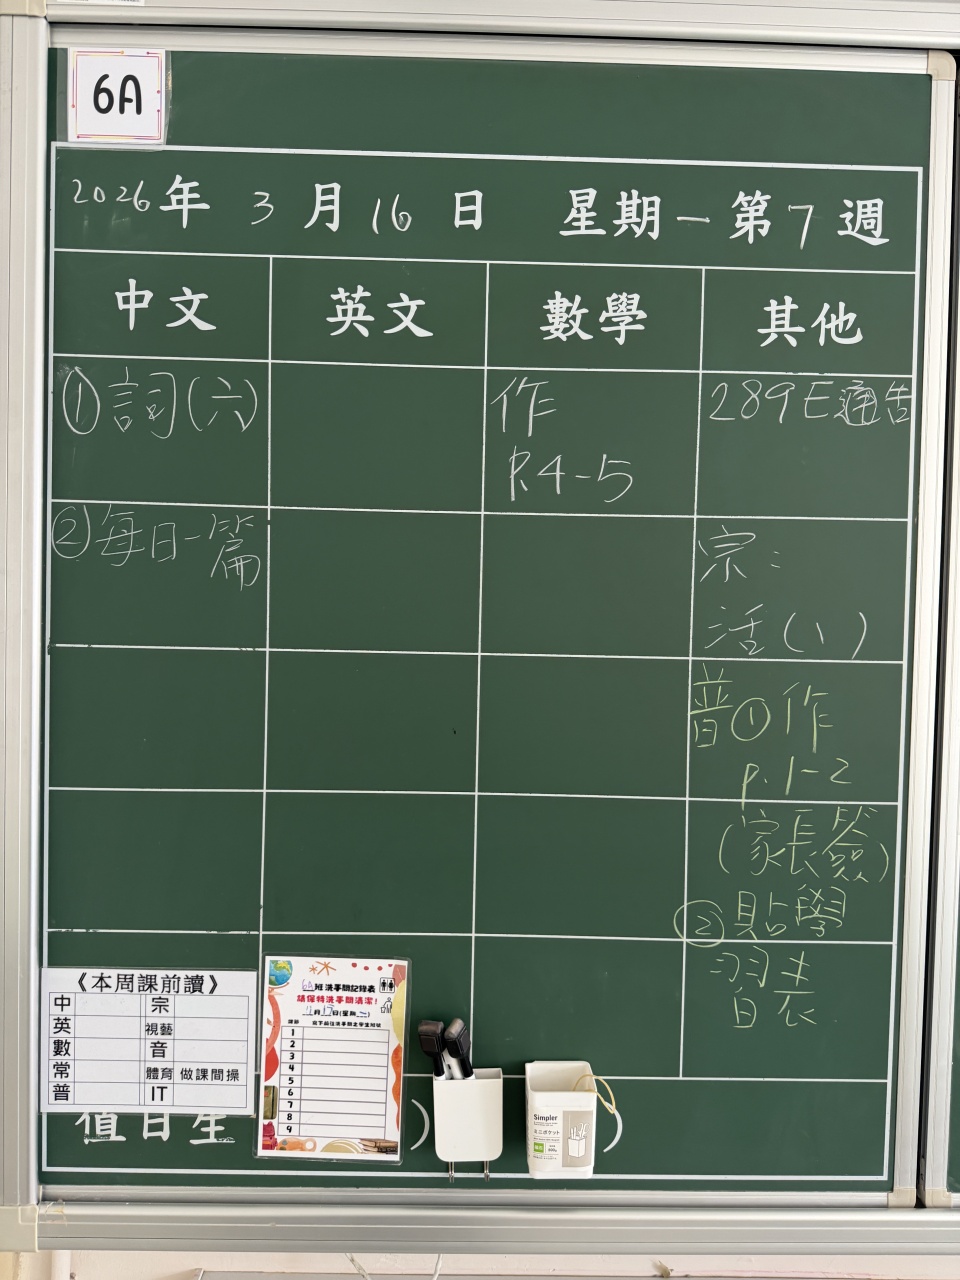 6A
2026年 3月16日 星期一第7週
中文 英文 數學 其他
①詞(六)
②每日一篇
作
P.4-5
289E通告
宗:
活(八)
普①作
p.1-2
(家長簽)
②貼學
習表
《本周課前讀》
中 宗
英 視藝
數 音
常 體育 做課間操
普 IT
值日生
6A班洗手間記錄表
請保持洗手間清潔！
1
2
3
4
5
6
7
8
9
Simpler
ミニポケット